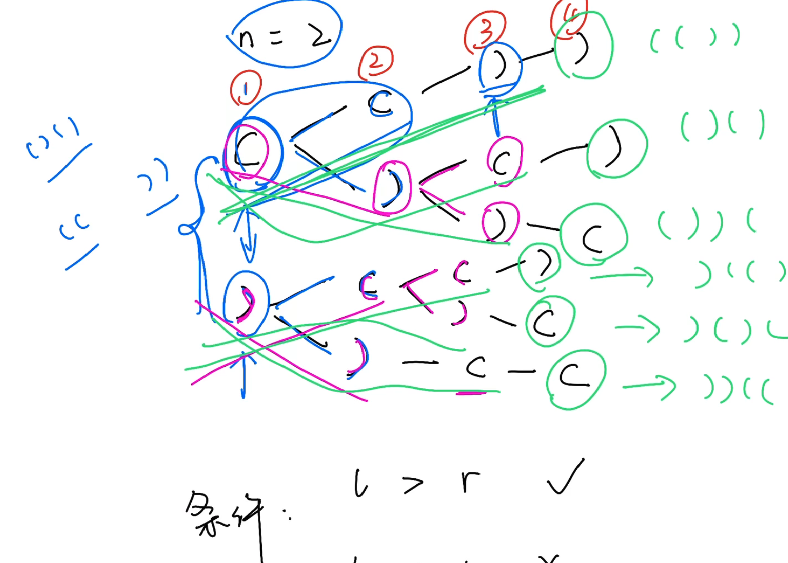 n = 2
① ② ③ ④
( ( ) ) ( ( ) )
( ) ( )
( ) ( ) ( ) ( )
) )
( (
) ( ( ) ) (
( ( ) ) ( ( )
) ) ( ) ( ) (
) ( ( ) ) ( (
条件: l > r ✓